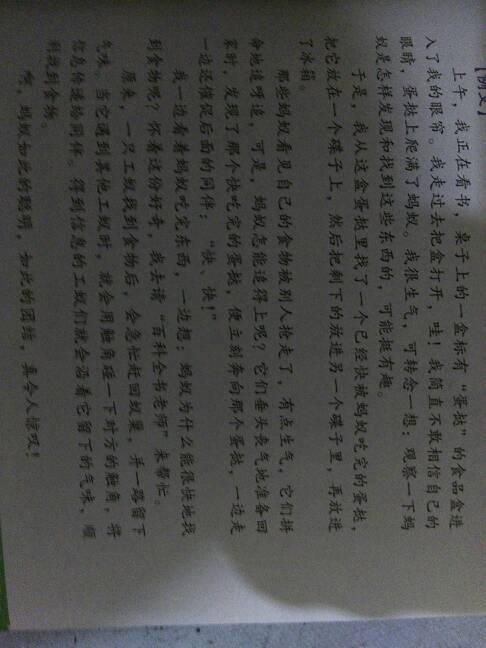 【例文】
上午，我正在看书，桌子上的一盒标有“蛋挞”的食品盒进
入了我的眼帘。我走过去把盒打开，哇！我简直不敢相信自己的
眼睛，蛋挞上爬满了蚂蚁。我很生气，可转念一想：观察一下蚂
蚁是怎样发现和找到这些东西的，可能挺有趣。
于是，我从这盒蛋挞里找了一个已经快被蚂蚁吃完的蛋挞，
把它放在一个碟子上，然后把剩下的放进另一个碟子里，再放进
了冰箱。
那些蚂蚁看见自己的食物被别人抢走了，有点生气，它们拼
命地追呼追，可是，蚂蚁怎能追得上呢？它们垂头丧气地准备回
家时，发现了那个快吃完的蛋挞，便立刻奔向那个蛋挞，一边走
一边还催促后面的同伴：“快、快！”
我一边看着蚂蚁吃完东西，一边想：蚂蚁为什么能很快地找
到食物呢？怀着这份好奇，我去请“百科全书老师”来帮忙。
原来，一只工蚁找到食物后，会急忙赶回蚁巢，并一路留下
气味。当它遇到其他工蚁时，就会用触角碰一下对方的触角，将
信息传递给同伴。得到信息的工蚁们就会沿着它留下的气味，顺
利找到食物。
啊，蚂蚁如此的聪明，如此的团结，真令人惊叹！